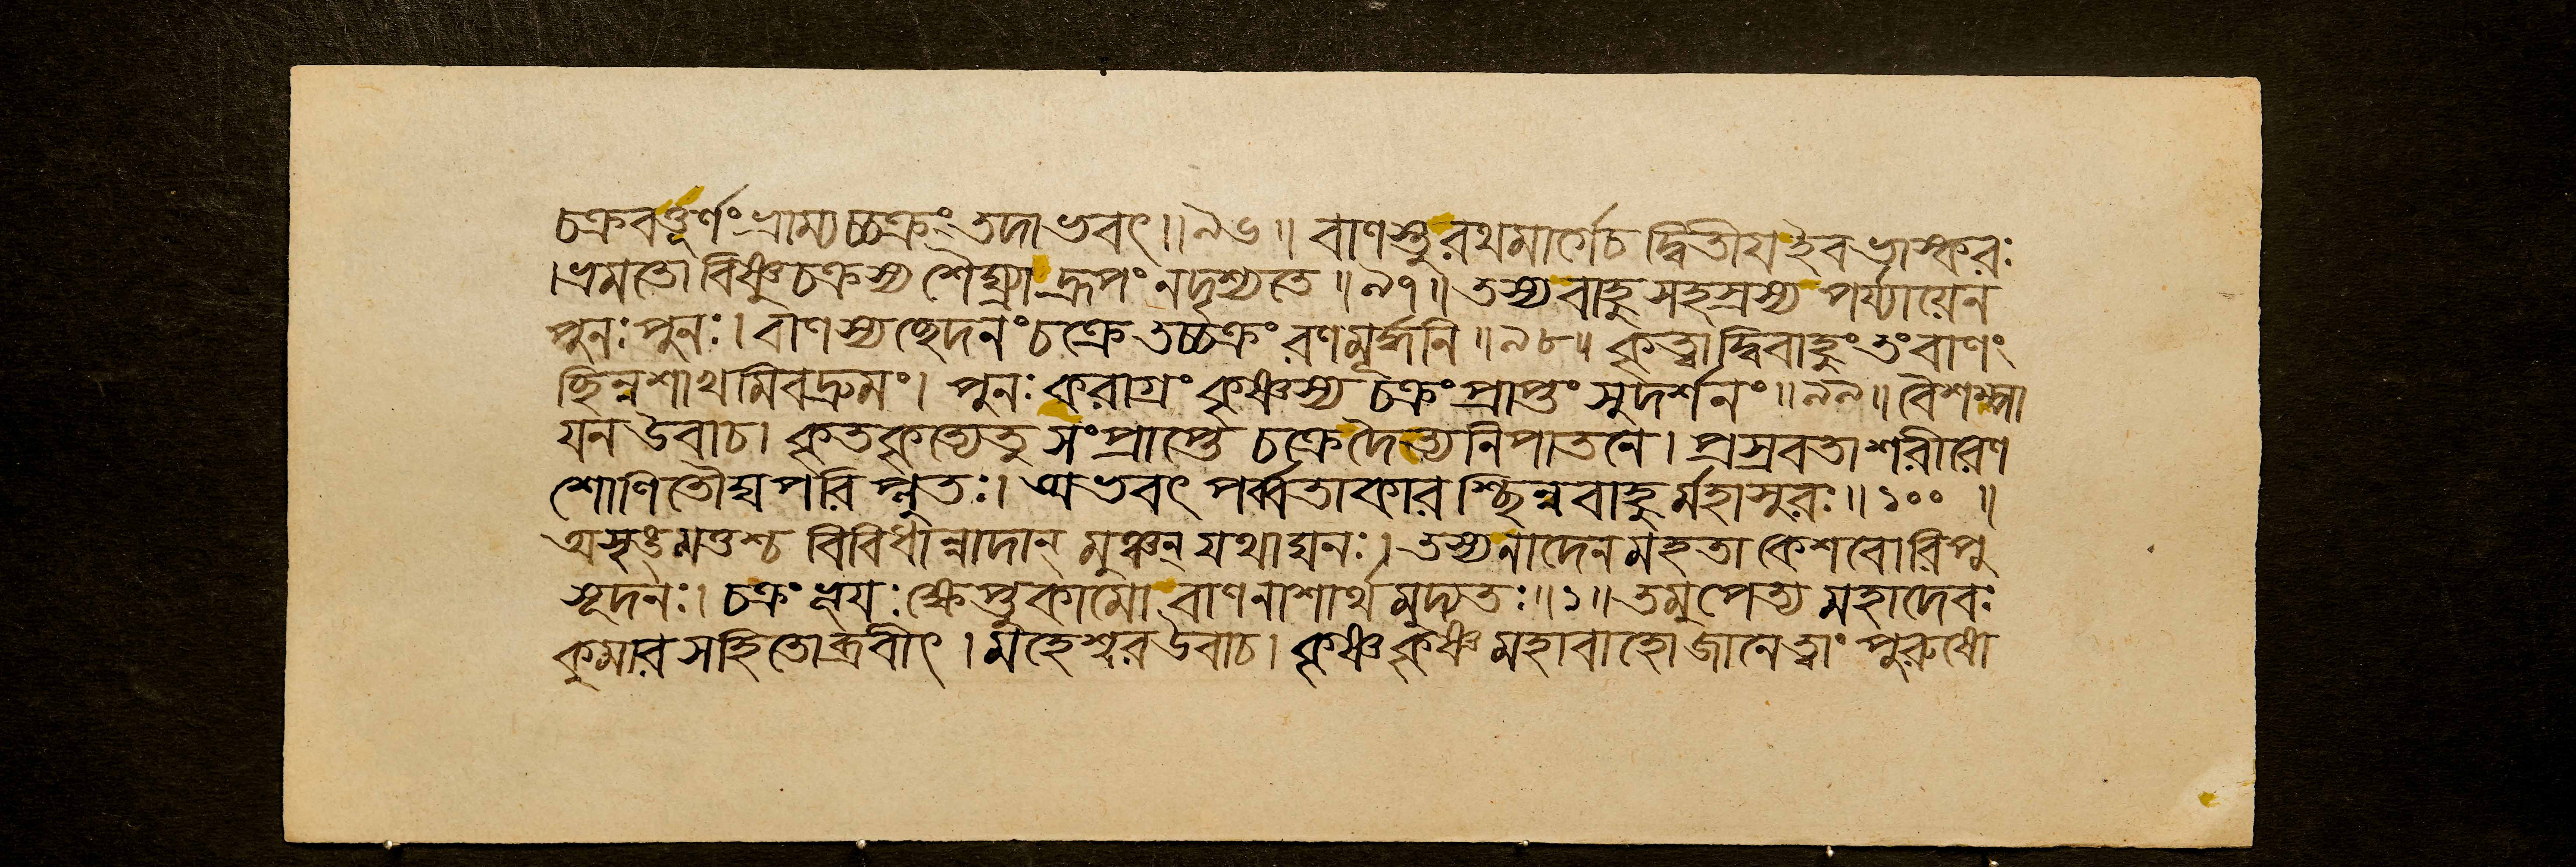 চক্রবত্তূর্ণং ভ্রাম্যচ্চক্রং তদাভবৎ॥৯৬॥ বাণস্তুরথমার্গেচ দ্বিতীয়ইবভাস্করঃ
।ভ্রমতো বিষ্ণুচক্রস্য শৈঘ্র্যাদ্রূপং নদৃশ্যতে॥৯৭॥ তস্যবাহুসহস্রস্য পর্য্যায়েন
পুনঃপুনঃ। বাণস্যচ্ছেদনং চক্রে তচ্চক্রং রণমূর্দ্ধনি॥৯৮॥ কৃত্বাদ্বিবাহুং তংবাণং
ছিন্নশাখমিবদ্রুমং। পুনঃ করাগ্রং কৃষ্ণস্য চক্রংপ্রাপ্তং সুদর্শনং॥৯৯॥ বৈশম্পা
য়ন উবাচ। কৃতকৃত্যেতু সংপ্রাপ্তে চক্রেদৈত্যনিপাতনে। প্রস্রবতা শরীরেণ
শোণিতৌঘপরিপ্লুতঃ। অভবৎ পর্ব্বতাকারশ্ছিন্নবাহুর্মহাসুরঃ॥১০০॥
অসৃঙ্মত্তশ্চ বিবিধান্নাদান্ মুঞ্চন্ যথাঘনঃ। তস্যনাদেনমহতা কেশবোরিপু
সূদনঃ। চক্রং ভূয়ঃক্ষেপ্তুকামো বাণনাশার্থমুদ্যতঃ॥১॥ তমুপেত্য মহাদেবঃ
কুমারসহিতোব্রবীৎ। মহেশ্বরউবাচ। কৃষ্ণকৃষ্ণ মহাবাহো জানেত্বাং পুরুষো